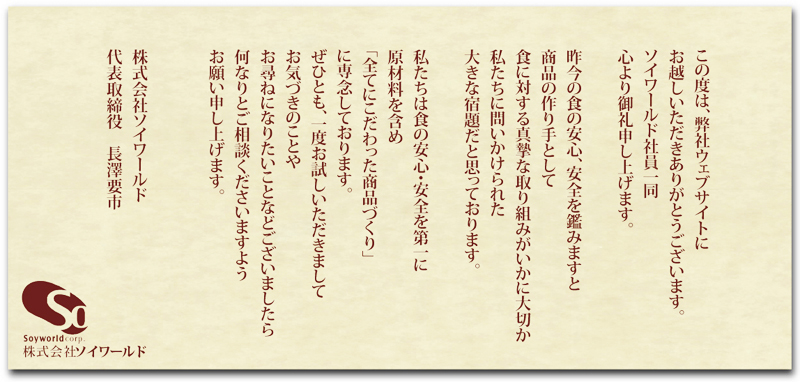 この度は、弊社ウェブサイトに
お越しいただきありがとうございます。
ソイワールド社員一同
心より御礼申し上げます。
昨今の食の安心、安全を鑑みますと
商品の作り手として
食に対する真摯な取り組みがいかに大切か
私たちに問いかけられた
大きな宿題だと思っております。
私たちは食の安心・安全を第一に
原材料を含め
「全てにこだわった商品づくり」
に専念しております。
ぜひとも、一度お試しいただきまして
お気づきのことや
お尋ねになりたいことなどございましたら
何なりとご相談くださいますよう
お願い申し上げます。
株式会社ソイワールド
代表取締役　長澤要市
So
Soyworld corp.
株式会社ソイワールド